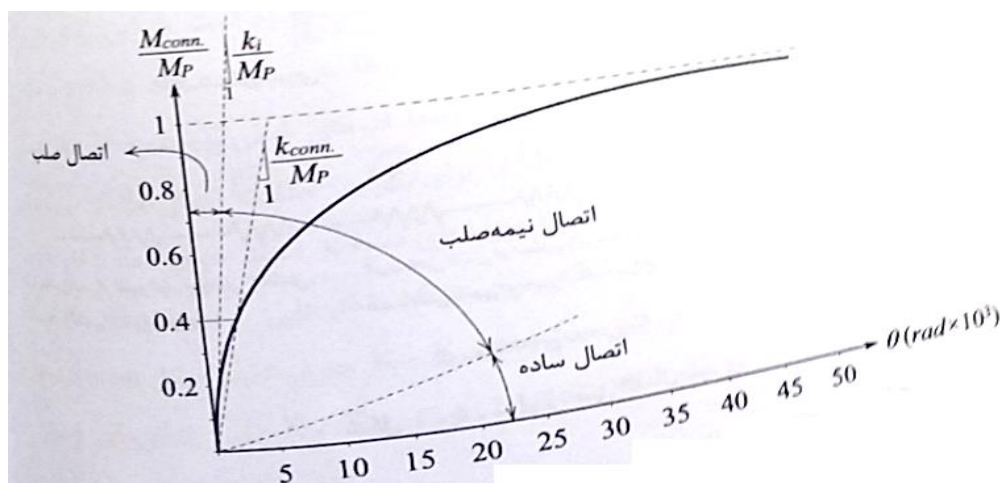 M_conn. / M_P
k_i / M_P
1
1
k_conn. / M_P
1
اتصال صلب
0.8
0.6
0.4
0.2
اتصال نیمه‌صلب
اتصال ساده
θ (rad×10³)
5 10 15 20 25 30 35 40 45 50